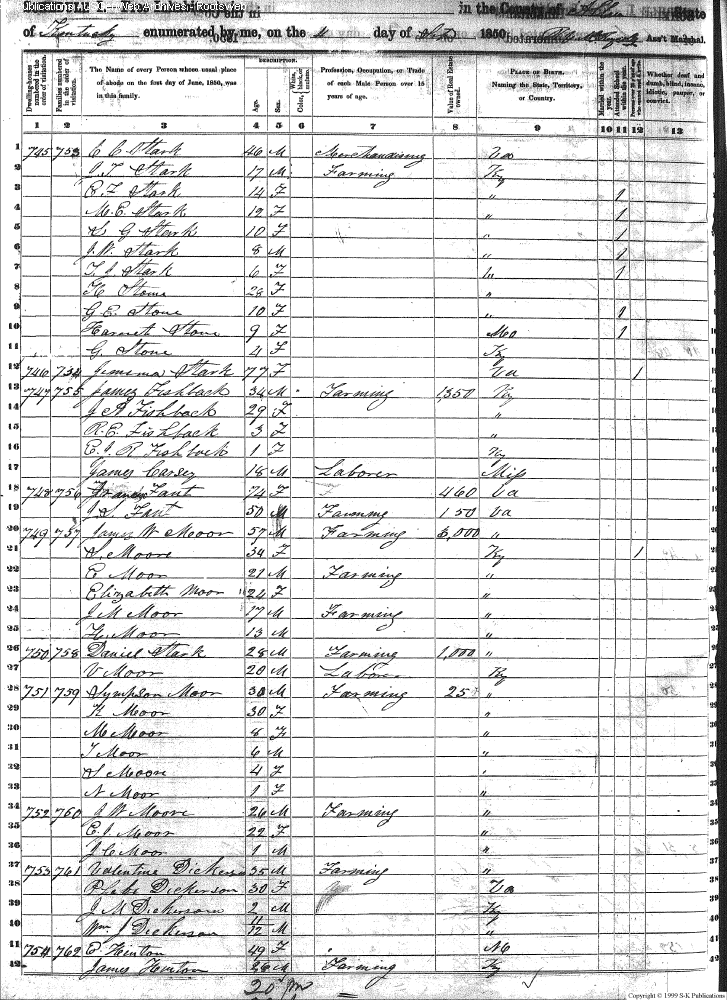 in the County of
State
of Kentucky enumerated by me, on the day of 1850. Ass't Marshal.
Dwelling-houses numbered in the order of visitation.
Families numbered in the order of visitation.
The Name of every Person whose usual place of abode on the first day of June, 1850, was in this family.
DESCRIPTION.
Age.
Sex.
Color, White, black, or mulatto.
Profession, Occupation, or Trade of each Male Person over 15 years of age.
Value of Real Estate owned.
PLACE OF BIRTH. Naming the State, Territory, or Country.
Married within the year.
Attended School within the year.
Whether deaf and dumb, blind, insane, idiotic, pauper, or convict.
1 2 3 4 5 6 7 8 9 10 11 12 13
1 745 753 C C Stark 46 M Merchandising Va
2 J. T. Stark 17 M Farming Ky
3 E. F. Stark 14 F " 1
4 M. E. Stark 12 F " 1
5 S G Stark 10 F " 1
6 J. W. Stark 8 M " 1
7 T. J. Stark 6 F " 1
8 H Stone 28 F "
9 G E. Stone 10 F " 1
10 Harriet Stone 9 F Mo 1
11 G. Stone 4 F Ky
12 746 754 Jemima Stark 77 F Va 1
13 747 755 James Fishback 34 M Farming 1,350 Ky
14 J A Fishback 29 F "
15 R. E. Fishback 3 F "
16 E. J. R Fishback 1 F Ky
17 James Carsey 18 M Laborer Miss
18 748 756 Fant 74 F 460 Va
19 J S Fant 50 M Farming 150 Va
20 749 757 James W Moor 57 M Farming 6,000 "
21 S. Moore 34 F Ky 1
22 E Moor 21 M Farming "
23 Elizabeth Moor 24 F "
24 J M Moor 17 M Farming "
25 H. Moor 13 M "
26 750 758 Daniel Stark 28 M Farming 1,000 "
27 V Moor 20 M Laborer Ky
28 751 759 Sympson Moor 30 M Farming 25 "
29 K Moor 30 F "
30 M Moor 8 F "
31 T Moor 6 M "
32 S Moore 4 F "
33 N Moor 1 F "
34 752 760 J W Moore 26 M Farming "
35 E. J. Moor 22 F "
36 J C Moor 1 M "
37 753 761 Valentine Dickerson 35 M Farming "
38 Phebe Dickerson 30 F Va
39 J M Dickerson 2 M Ky
40 Wm J Dickerson 11/12 M "
41 754 762 E Hinton 49 F
42 James Hinton 26 M Farming Ky
Copyright © 1999 S-K Publications